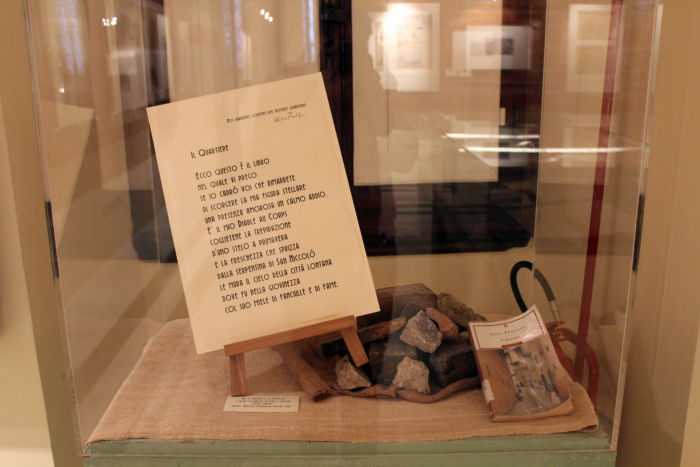 Noi eravamo contenti del nostro quartiere
Il Quartiere
Ecco questo è il libro
nel quale vi prego
se io cadrò voi che rimarrete
di scorgere la mia figura stellare
una presenza amorosa un calmo addio.
E' il mio Diable au Corps
coglietene la trepidazione
d'uno stelo a primavera
e la freschezza che sprizza
dalla serpentina di San Niccolò
le mura il cielo della città lontana
dove fu bella giovinezza
col suo miele di fanciulle e di fame.